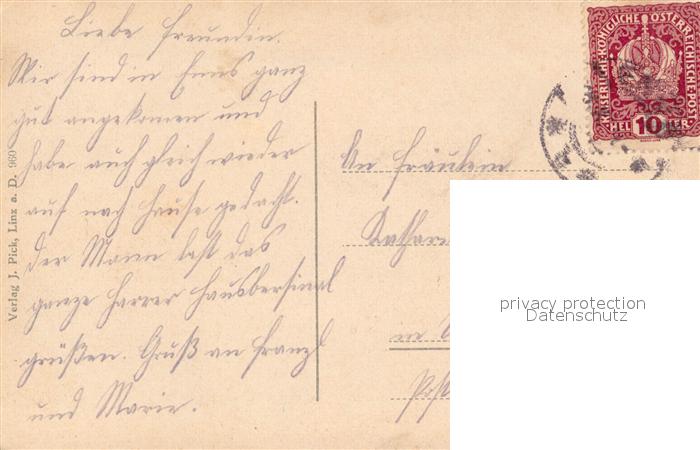 Liebe Freundin.
Wir sind in Enns ganz
gut angekomen und
habe auch gleich wieder
auf nach Hause gedacht.
der Mann last das
ganze Harrer
grüßen. Gruß an Franzl
und Marie.
Verlag J. Pick, Linz a. D. 960
KAISERLICHE KÖNIGLICHE ÖSTERREICHISCHE POST
HELLER 10
An Fräulein
in
Post
privacy protection
Datenschutz